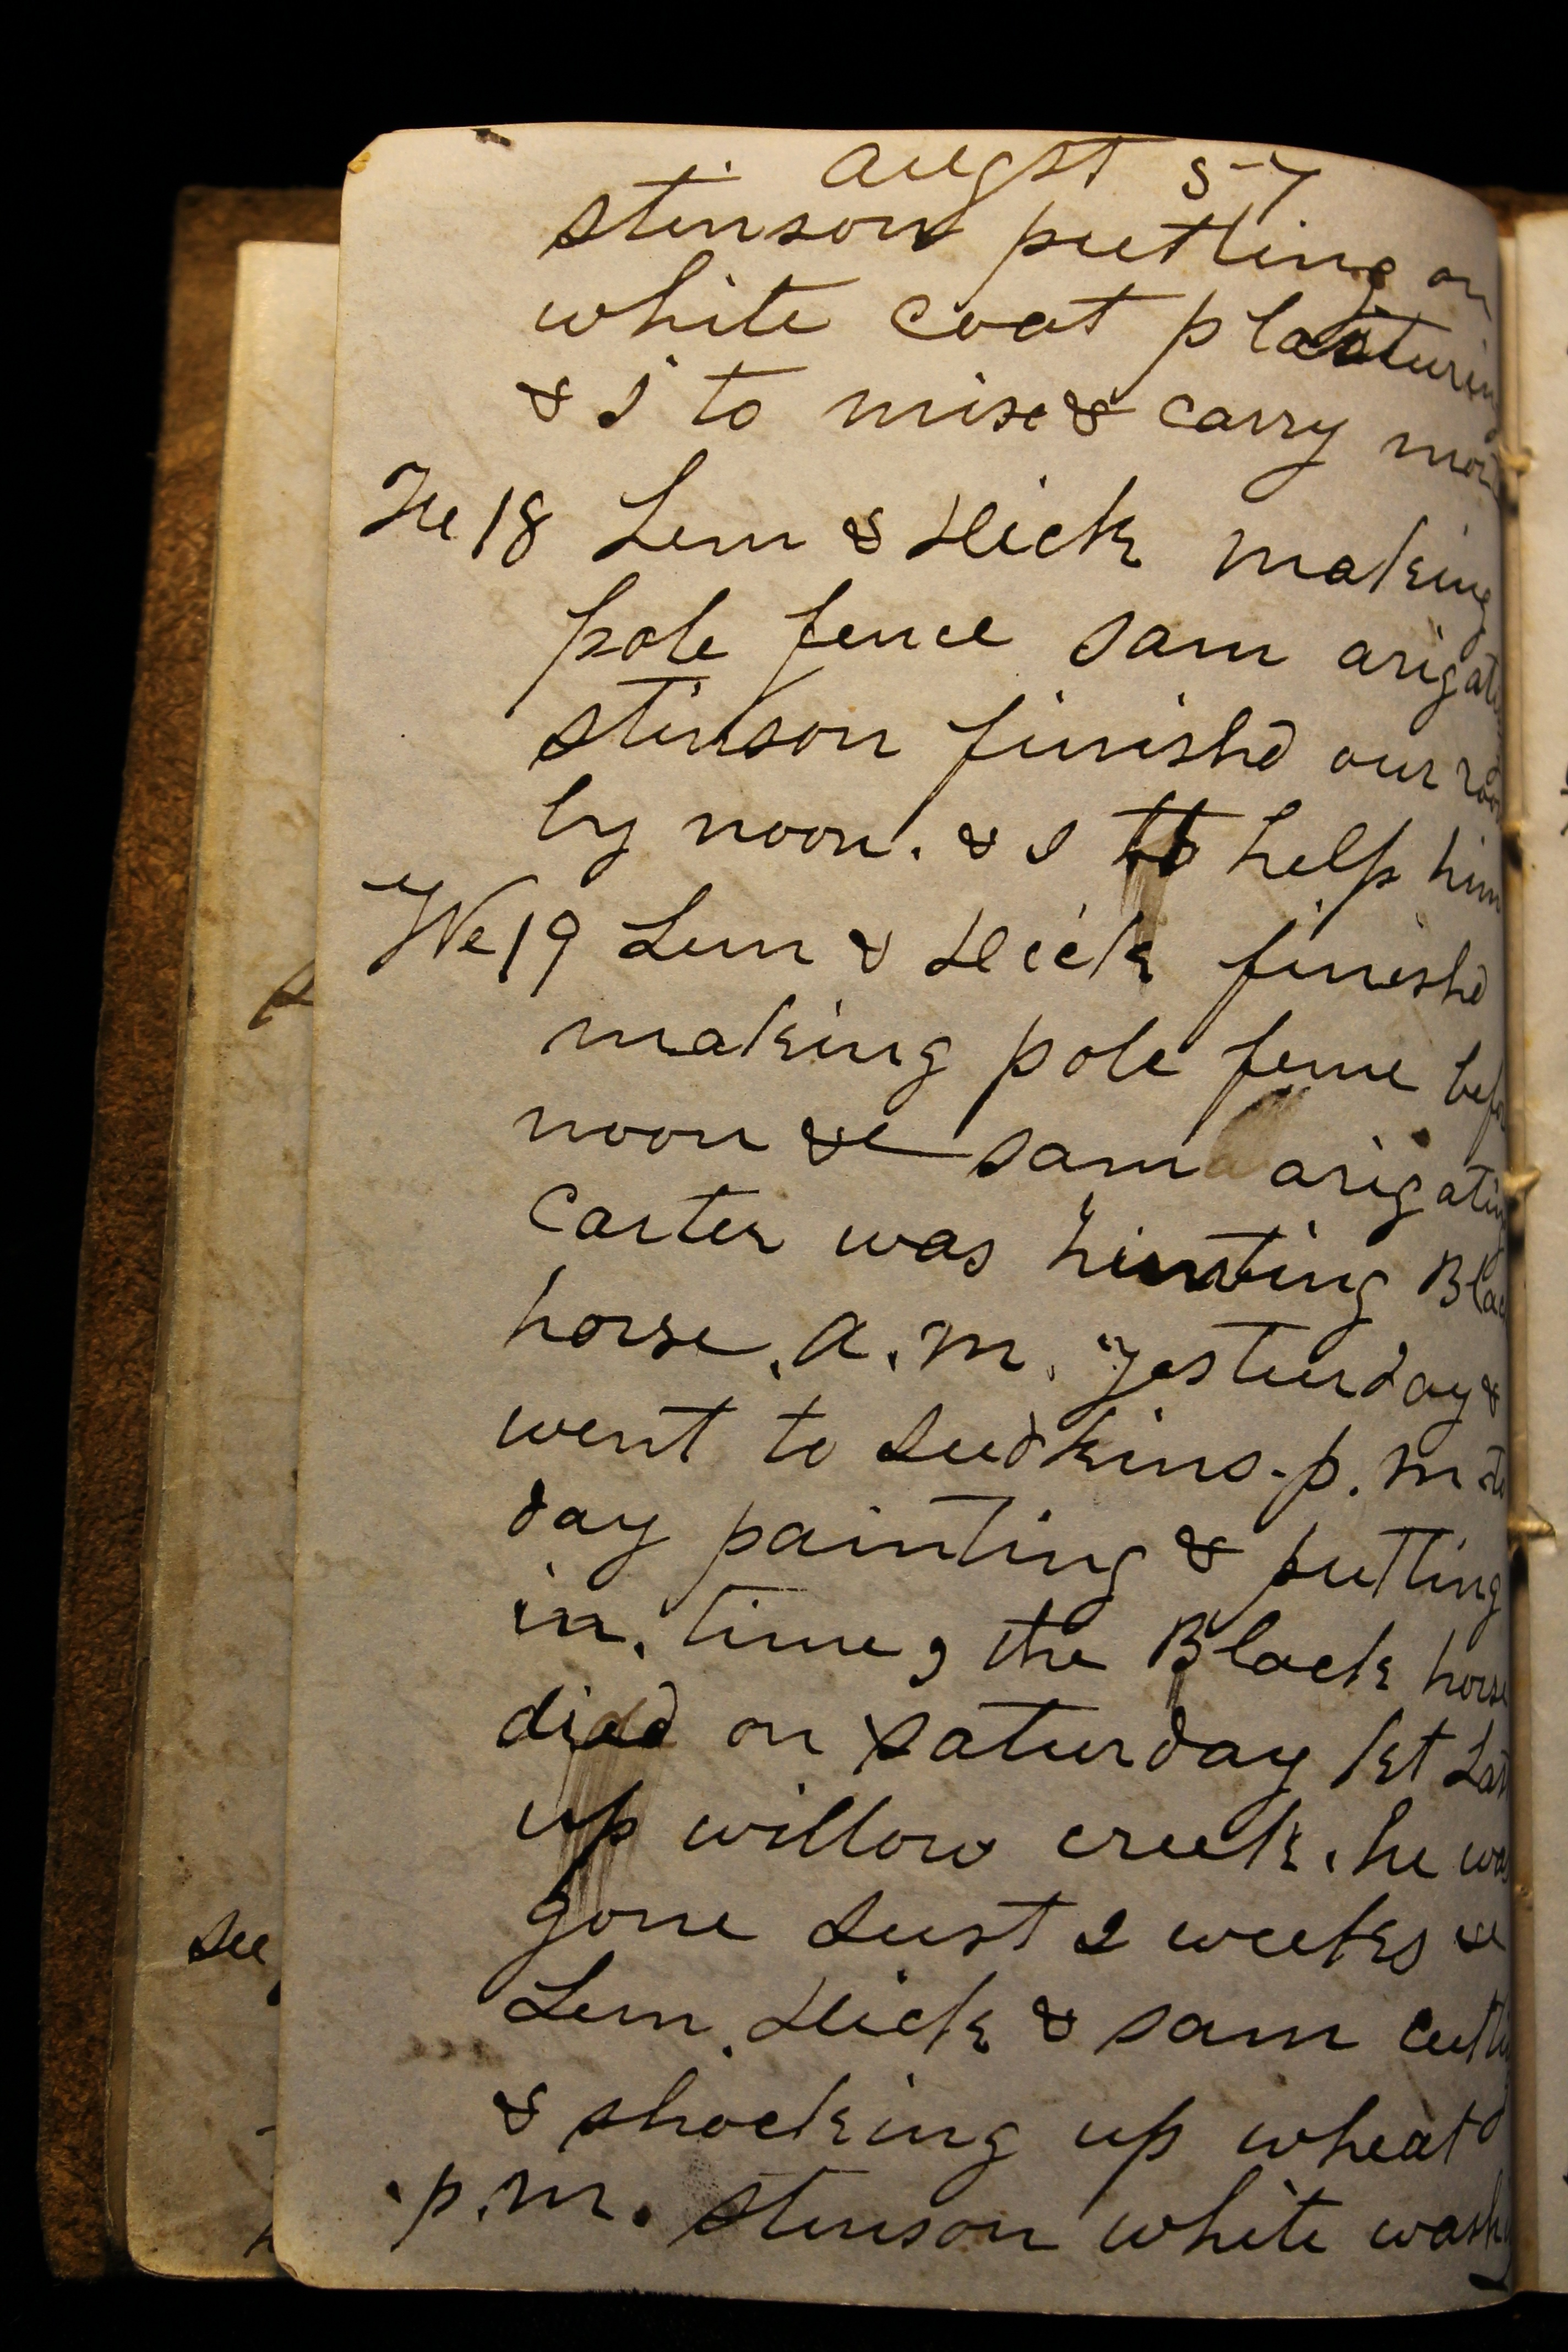 augst 57
stinson putting on
white coat plasturing
& I to mixe & carry mort
Tu 18 Lem & Dick making
pole fence Sam arigati
stinson finishd our room
by noon. & I to help him
We 19 Lem & Dick finishd
making pole fence befo
noon & Sam arigating
Carter was hunting Blac
horse. A.M. yesturday &
went to Judkins. p.m to
day painting & putting
in. time, the Black horse
died on Saturday 1st Last
up willow creek. he was
gone Just 2 weeks &
Lem. Dick & Sam cutti
& shocking up wheat
p.m. Stinson white wash
see